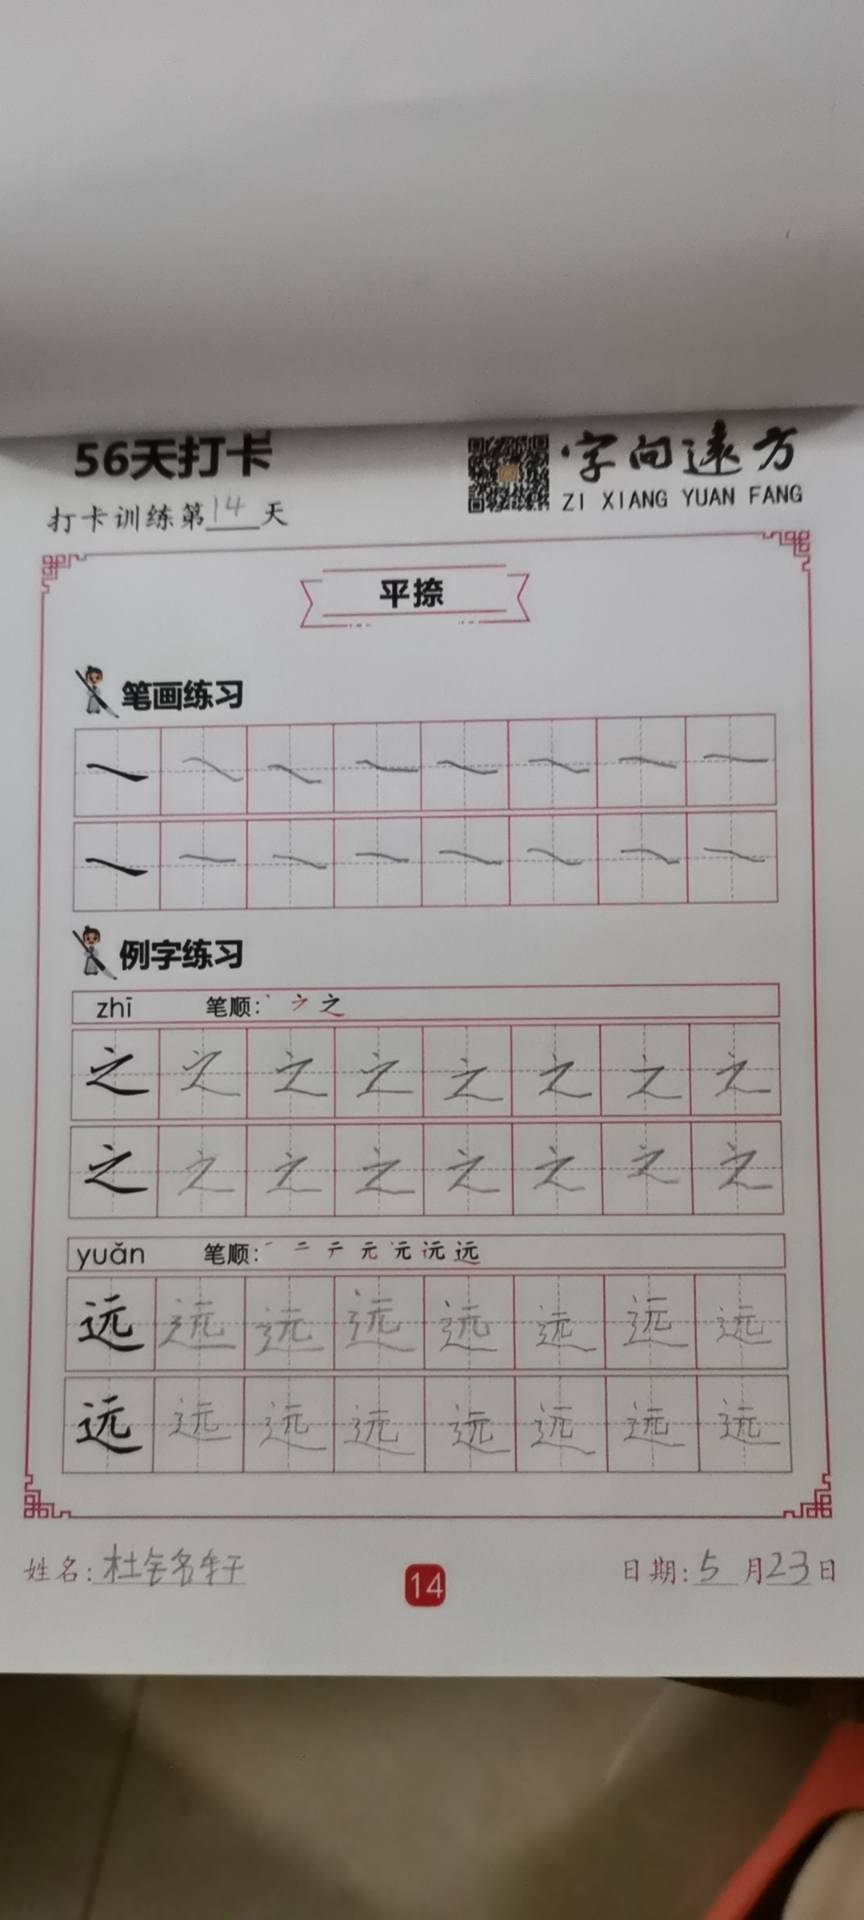 56天打卡
字向遠方
ZI XIANG YUAN FANG
打卡训练第14天
平捺
笔画练习
例字练习
zhī 笔顺: 之
之 之 之 之 之 之 之 之
之 之 之 之 之 之 之 之
yuǎn 笔顺: 一 二 テ 元 元 沅 远
远 远 远 远 远 远 远 远
远 远 远 远 远 远 远 远
姓名: 杜 轩
14
日期: 5 月 23 日